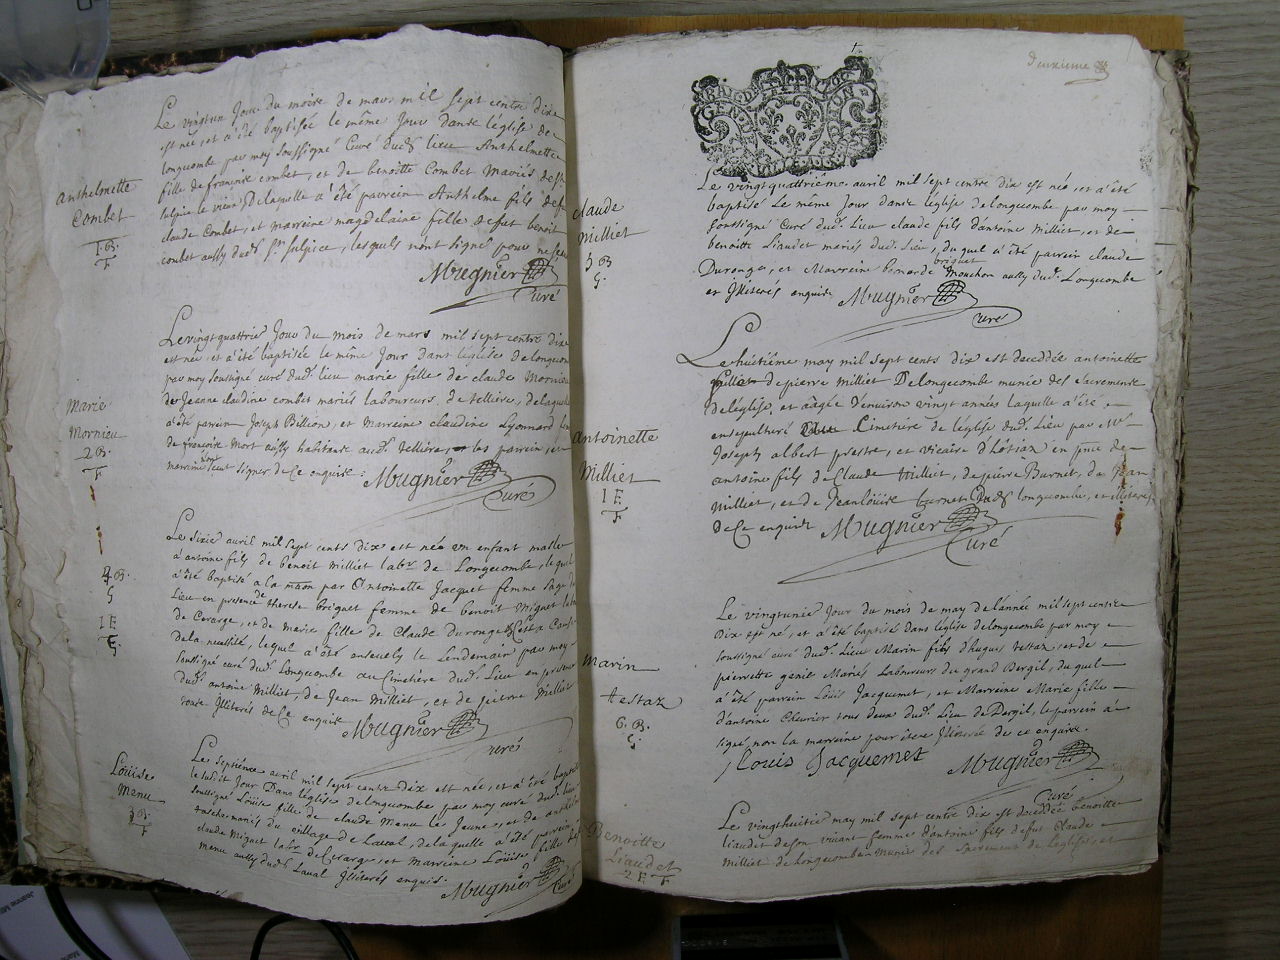 Anthelmette
Combet
1. B.
F
Le vingtun Jour du mois de mars mil sept centz dix
est née, et a été baptisée le même Jour dans léglise de
longecombe par moy soussigné Curé dud. lieu Anthelmette
fille de françois combet, et de benoitte Combet mariés de st.
sulpis le vieux de laquelle a été parrein Anthelme fils de feu
claude Combet, et marreine magdelaine fille de feut benoit
combet aussy dud. st. sulpice, lesquels nont signé pour ne
Mugnier
Curé
Marie
Mornieu
2 B.
F
Le vingtquattrie Jour du mois de mars mil sept centz dix
est née, et a été baptisée le même Jour dans léglise de longecom
par moy soussigné curé dud. lieu marie fille de claude Mornieu
de Jeanne claudine combet mariés laboureurs de tellière, de laquelle
a été parrein Joseph Billion, et Marreine claudine Lyonnard
de françois Mort aussy habitants aud. tellière, les parrein, et
marreine signer de Ce enquis
Mugnier
Curé
4 B.
G
1 E
G
Le sixie avril mil sept cents dix est née un enfant masle
a antoine fils de benoit Milliet labr. de Longecombe, lequel
a été baptisé a la maison par Antoinette Jacquet femme sage
Lieu en presence de therese briguet femme de benoit Miguet
de Cerarge, et de marie fille de Claude Durong
de la necessité, lequel a été enseuely le Lendemain par moy
soussigné curé dud. Longecombe au Cimetière dud. Lieu en presence
dud. antoine Milliet, de Jean Milliet, et de pierre Milliet
tous Illiterés de Ce enquis
Mugnier
curé
Loüise
Menu
3 B.
F
Le Septième avril mil sept centz dix est née, et a été baptisée
le susdit Jour Dans Léglise de longecombe par moy curé dud. lieu
soussigné Loüise fille de claude Menu le Jeune, et de
mariés du village de Laval, de laquelle a été parrein
claude Miguet labr. de Cerarge, et marreine Loüise fille
menu aussy dud. Laval Illiterés enquis.
Mugnier
Curé
deuxieme
GEN
claude
Milliet
5 B
G.
Le vingtquattriéme avril mil sept centz dix est né, et a été
baptisé Le même Jour dans Léglise de longecombe par moy
soussigné Curé dud. Lieu claude fils d'antoine Milliet, et de
benoitte Liaudet mariés dud. Lieu, duquel a été parrein claude
Durong, et Marreine bernarde briguet Mouchon aussy dud. Longecombe
et Illiterés enquis
Mugnier
curé
Antoinette
Milliet
1 E
F
Le huitiéme may mil sept cents dix est decedée antoinette
de pierre Milliet De longecombe munie des sacremens
de leglise, et aagée d'environ vingt années laquelle a été
ensepulturé Cimetiere de léglise dud. Lieu par Mr.
Joseph albert prestre, et vicaire d'hotian en pnce de
antoine fils de Claude Milliet, de piere Burnet, de Jean
Milliet, et de Jean Loüise burnet dud. longecombe, et Illiteres
de Ce enquis
Mugnier
Curé
Marin
testaz
6. B.
G
Le vingtunie Jour du mois de may de l'année mil sept centz
Dix est né, et a été baptisé dans Léglise de longecombe par moy
soussigné curé dud. Lieu Marin fils d'hugues testaz, et de
pierrette genit Mariés Laboureurs du grand Dergil, duquel
a été parrein Loüis Jacquemet, et Marreine Marie fille
d'antoine Cheurier tous deux dud. Lieu de Dergil, le parrein a
signé non la marreine pour être Illiterée de ce enquise.
Louis Jacquemet
Mugnier
Curé
Benoitte
Liaudet
2 E. F
Le vingthuitie may mil sept centz dix est decedée benoitte
liaudet de son vivant femme d'antoine fils de feu Claude
Milliet de Longecombe munie des sacremens de Leglise, et